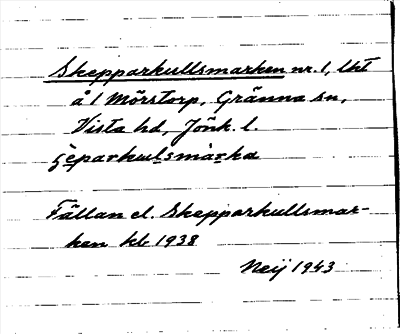 Skepparkullsmarken nr. 1, lht
å 1 Mörstorp, Gränna sn,
Vista hd, Jönk. l.
ʃèparkulsmàrka
Fällan el. Skepparkullsmar-
ken kb 1938
Neij 1943